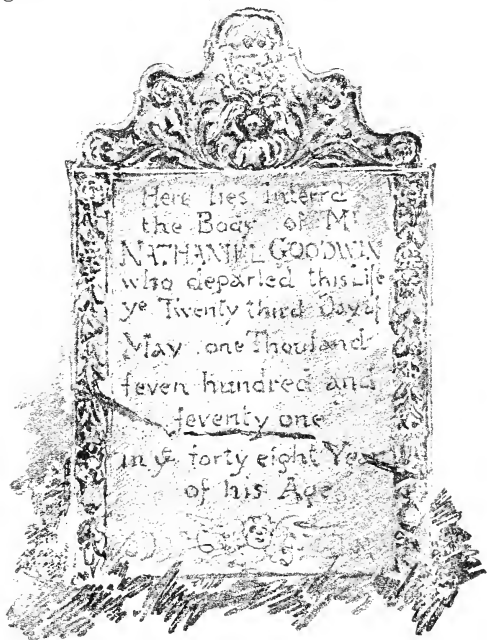 Here lies Interrd
the Body of Mr
NATHANIEL GOODWIN
who departed this Life
ye Twenty third Day of
May one Thouſand
ſeven hundred and
ſeventy one
in ye forty eight Year
of his Age